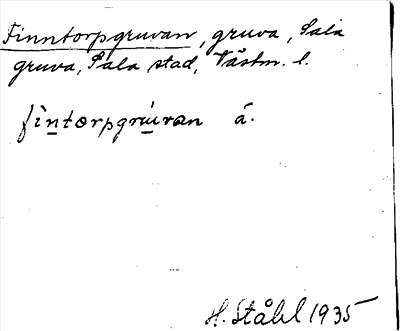 Finntorpgruvan, gruva, Sala
gruva, Sala stad, Västm. l.
fìntorpgrúvan á.
H. Ståhl 1935